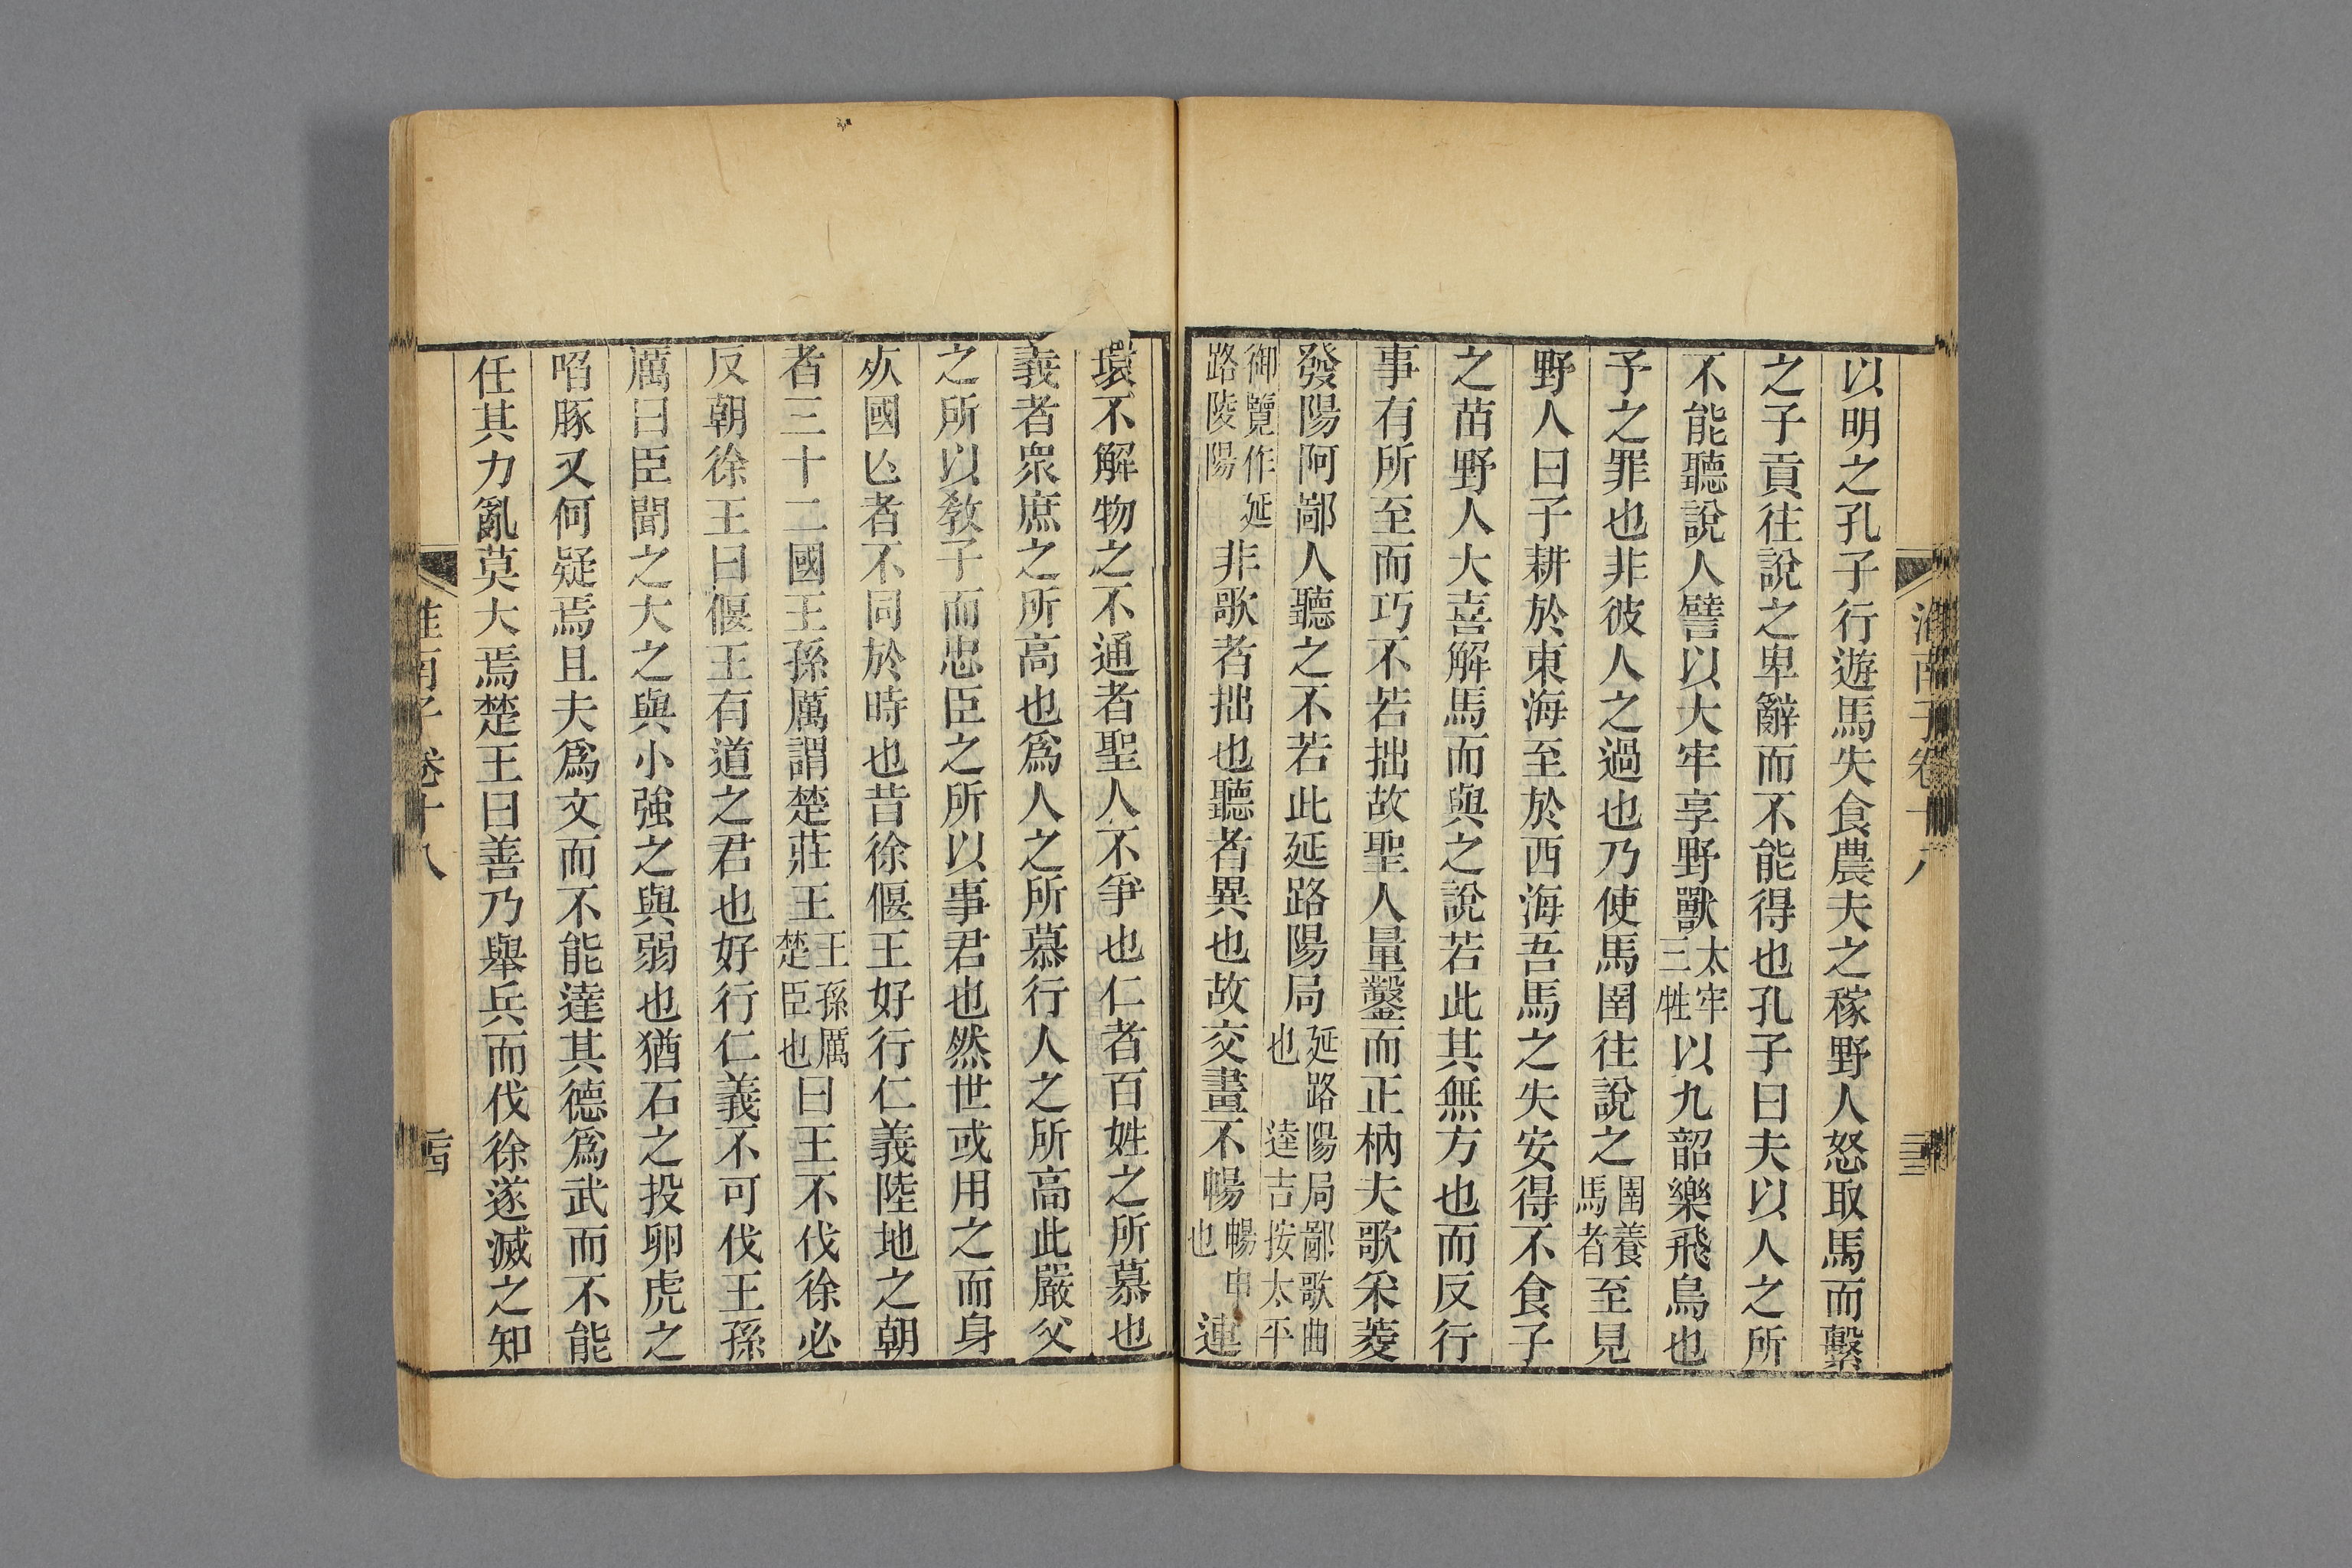 以明之孔子行遊馬失食農夫之稼野人怒取馬而繫
之子貢往說之卑辭而不能得也孔子曰夫以人之所
不能聽說人譬以大牢享野獸太牢三牲以九韶樂飛鳥也
予之罪也非彼人之過也乃使馬圉往說之圉養馬者至見
野人曰子耕於東海至於西海吾馬之失安得不食子
之苗野人大喜解馬而與之說若此其無方也而反行
事有所至而巧不若拙故聖人量鑿而正枘夫歌采菱
發陽阿鄙人聽之不若此延路陽局延路陽局鄙歌曲也 逵吉按太平
御覽作延路陵陽非歌者拙也聽者異也故交畫不暢暢申也連
環不解物之不通者聖人不爭也仁者百姓之所慕也
義者衆庶之所高也爲人之所慕行人之所高此嚴父
之所以敎子而忠臣之所以事君也然世或用之而身
死國亾者不同於時也昔徐偃王好行仁義陸地之朝
者三十二國王孫厲謂楚莊王王孫厲楚臣也曰王不伐徐必
反朝徐王曰偃王有道之君也好行仁義不可伐王孫
厲曰臣聞之大之與小強之與弱也猶石之投卵虎之
啗豚又何疑焉且夫爲文而不能達其德爲武而不能
任其力亂莫大焉楚王曰善乃舉兵而伐徐遂滅之知
淮南子卷十八